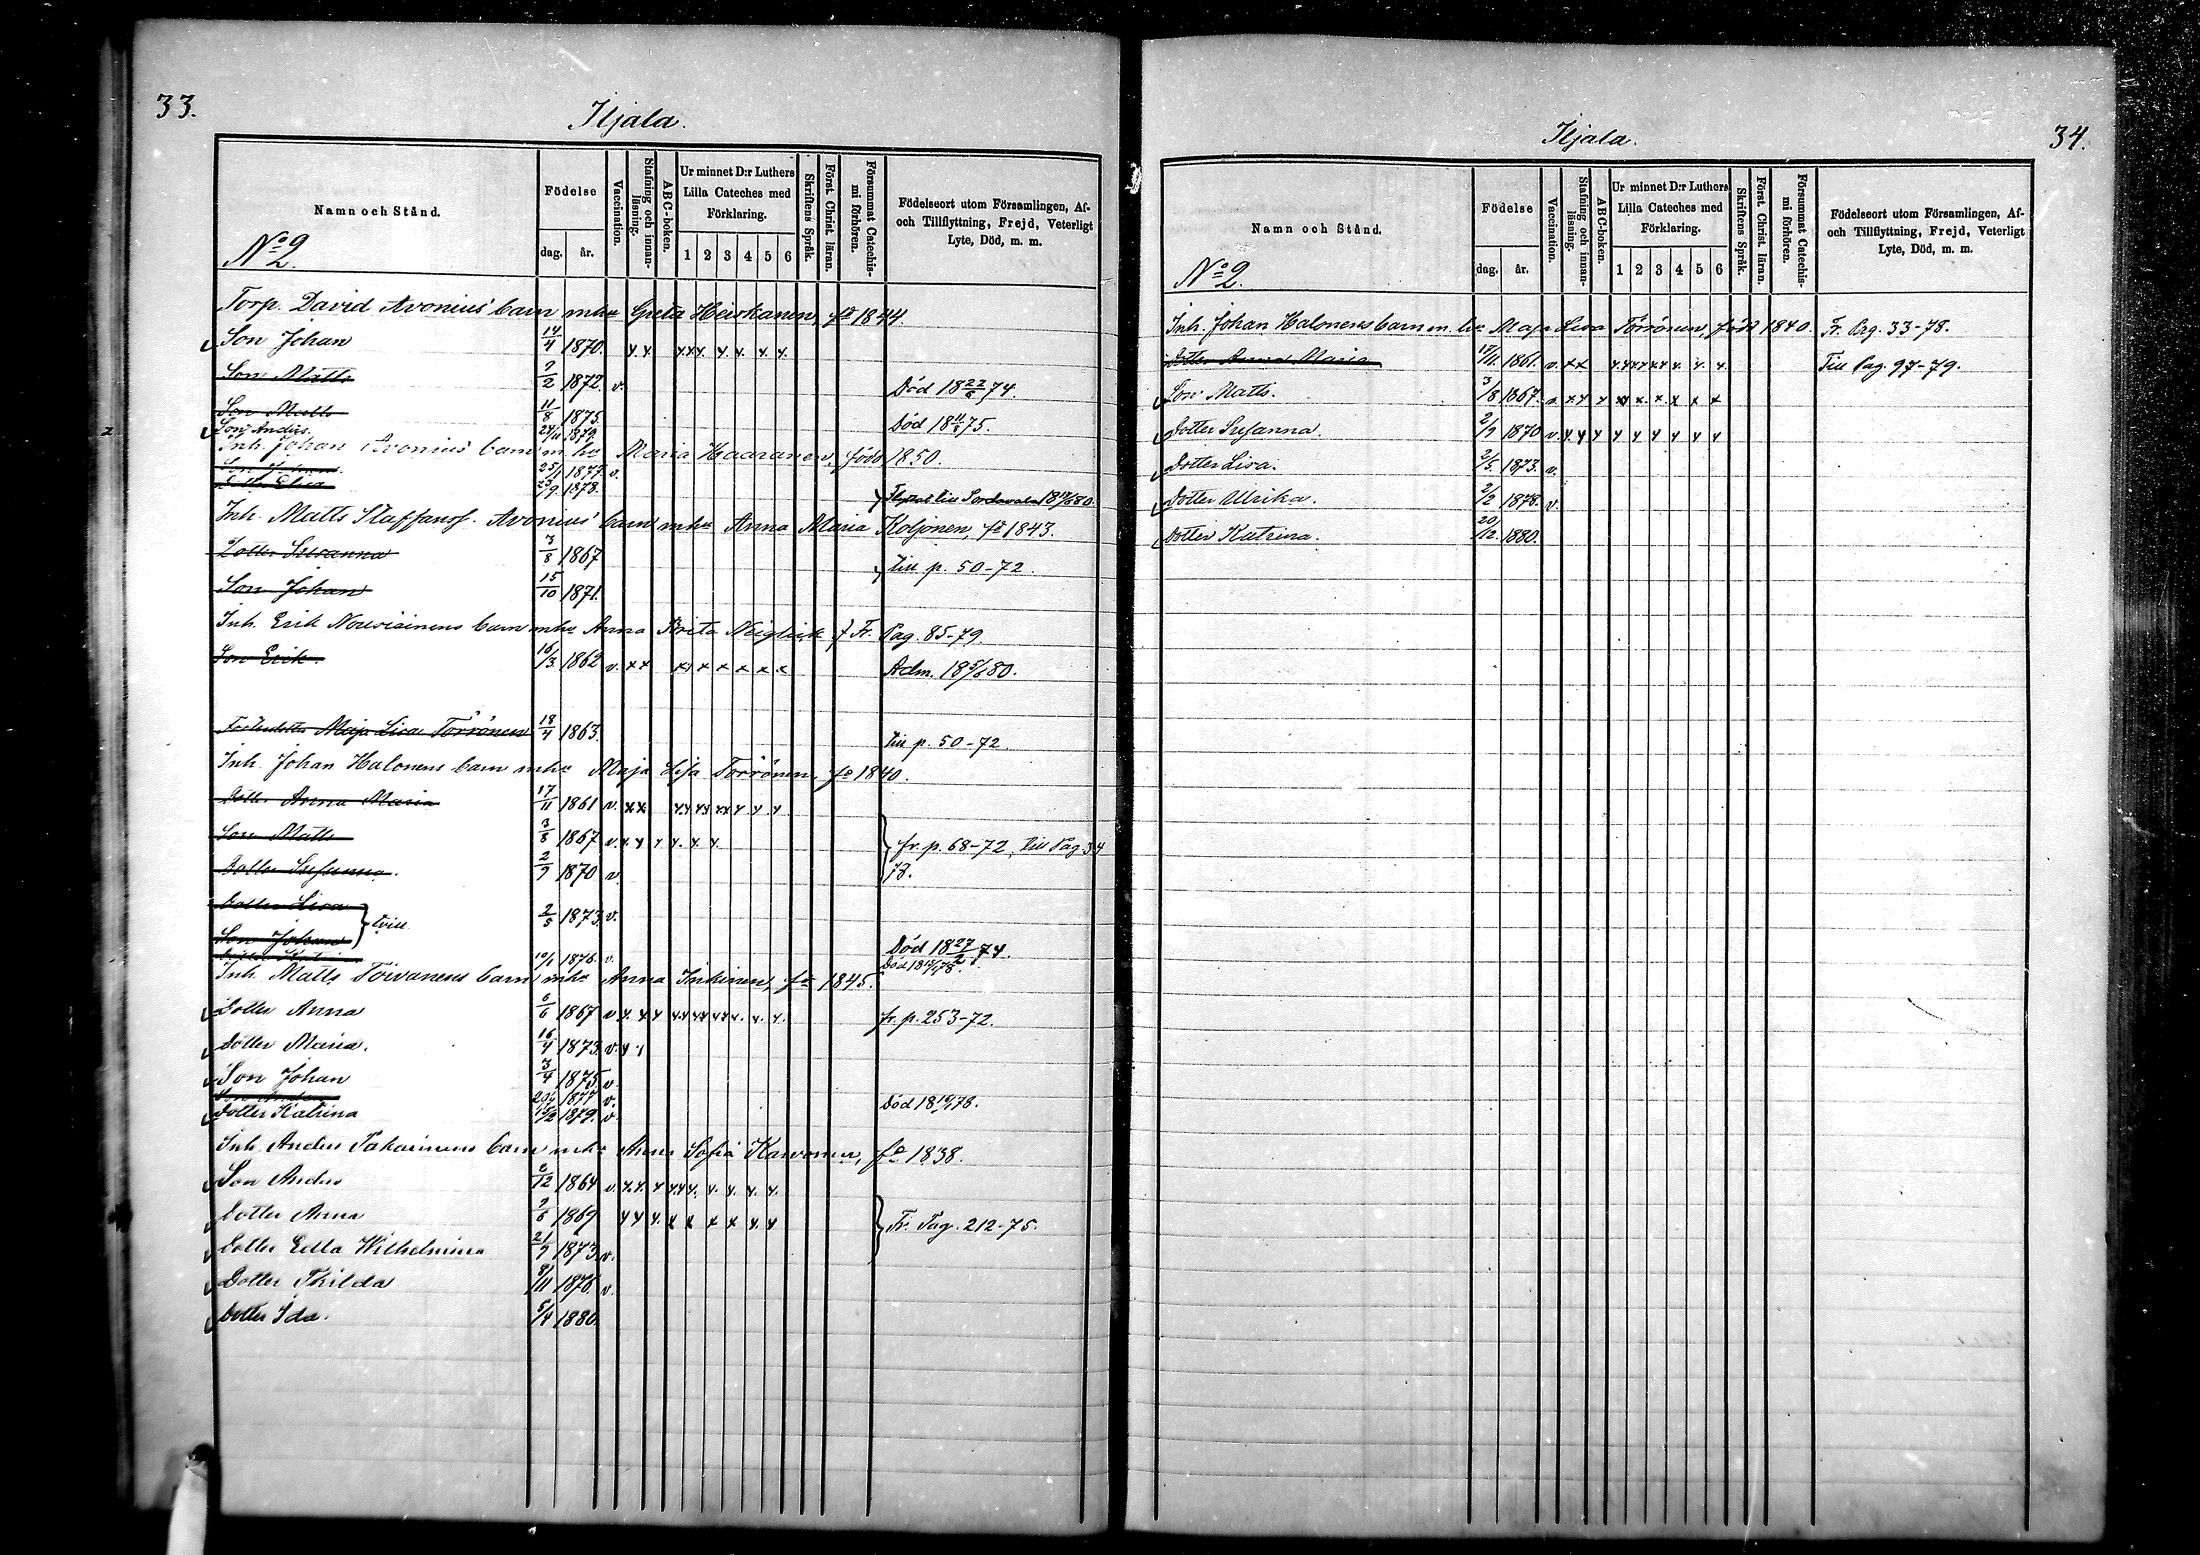 33.
Iljala.
Namn och Stånd.
Födelse
dag.
år.
Vaccination.
Stafning och innan-läsning.
ABC-boken.
Ur minnet D:r Luthers Lilla Cateches med Förklaring.
1 2 3 4 5 6
Skriftens Språk.
Först. Christ. läran.
Försummat Catechis-mi förhören.
Födelseort utom Församlingen, Af-
och Tillflyttning, Frejd, Veterligt
Lyte, Död, m. m.
No 2.
Torp. David Avonius' barn m hu Greta Heiskanen, fd 1844.
Son Johan 14/4 1870.
Son Matts 9/2 1872. v. Död 18 22/6 74.
Son Matts 11/8 1875. Död 18 11/8 75.
Son Anders. 24/11 1879.
Inh. Johan Avonius' barn m hu Maria Haaranen, född 1850.
Son Johan 25/1 1877. v.
Elisa 23/9 1878. Flyttat till Sordavala 1880.
Inh. Matts Staffanss. Avonius' barn m hu Anna Maria Koljonen, fd 1843.
Dotter Susanna 3/8 1867
Till p. 50-72.
Son Johan 15/10 1871.
Inh. Erik Nousiainens barn m hu Anna Brita Neiglick Fr. Pag. 85-79.
Son Erik. 16/3 1862 v. x x x x x x x x Adm. 1880.
Fosterdotter Maja Lisa Törrönen 18/4 1863. Till p. 50-72
Inh. Johan Halonens barn m hu Maja Lisa Törrönen, fd 1840.
Dotter Anna Maria 17/11 1861 v.
Son Matts 3/8 1867 v.
fr. p. 68-72, Till Pag 34
78.
Dotter Susanna. 2/9 1870 v.
Dotter Lisa 2/5 1873. v.
tvill.
Son Johan Död 18 27/2 74.
Dotter Katrina 10/1 1876. v. Död 1878.
Inh. Matts Toivanens barn m hu Anna Inkinen, fd 1845.
Dotter Anna 6/6 1867 v fr. p. 253-72.
Dotter Maria. 16/4 1873. v.
Son Johan 3/4 1875. v.
Son Anders 1877 v. Död 1878.
Dotter Katrina 1879. v
Inh. Anders Pakarinens barn m hu Anna Sofia Karvonen, fd 1838.
Son Anders 2/12 1864 v.
Dotter Anna 9/6 1869
Fr. Pag. 212-75.
Dotter Edla Wilhelmina 21/9 1873. v.
Dotter Thilda 8/11 1876. v.
Dotter Ida. 5/4 1880.
34.
Iljala.
Namn och Stånd.
Födelse
dag.
år.
Vaccination.
Stafning och innan-läsning.
ABC-boken.
Ur minnet D:r Luthers Lilla Cateches med Förklaring.
1 2 3 4 5 6
Skriftens Språk.
Först. Christ. läran.
Försummat Catechis-mi förhören.
Födelseort utom Församlingen, Af-
och Tillflyttning, Frejd, Veterligt
Lyte, Död, m. m.
No 2.
Inh. Johan Halonens barn m. hu Maja Lisa Törrönen, född 1840. Fr. Pag. 33-78.
Dotter Anna Maria 17/11 1861. v. Till Pag. 97-79.
Son Matts. 3/8 1867.
Dotter Susanna. 2/9 1870 v.
Dotter Lisa. 2/5 1873. v.
Dotter Ulrika. 2/2 1878. v.
Dotter Katrina. 20/12 1880.